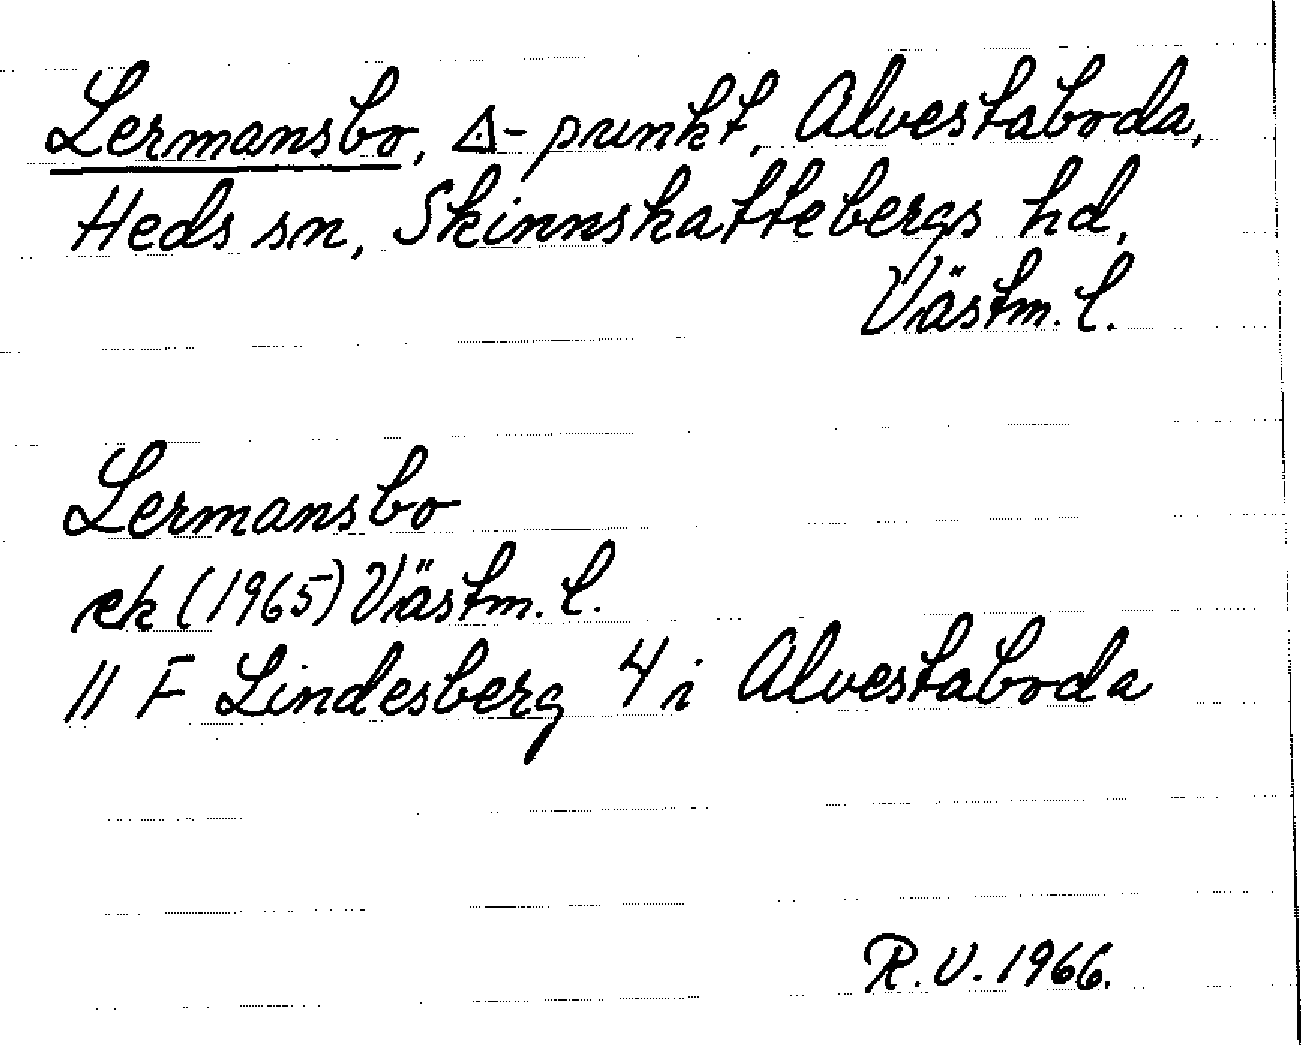 Lermansbo, ◬-punkt, Alvestaboda,
Heds sn, Skinnskattebergs hd,
Västm. l.
Lermansbo
ek (1965) Västm. l.
11 F Lindesberg 4 i Alvestaboda
R.V. 1966.